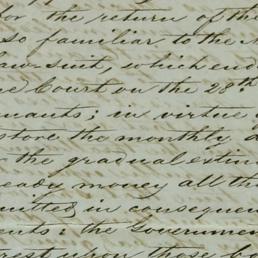 for the return of the
so familiar to the
law-suit, which end
Court on the 28th
in virtue
store the monthly
the gradual extin
ready money all th
mitted, in consequen
the Governmen
rest upon those bo